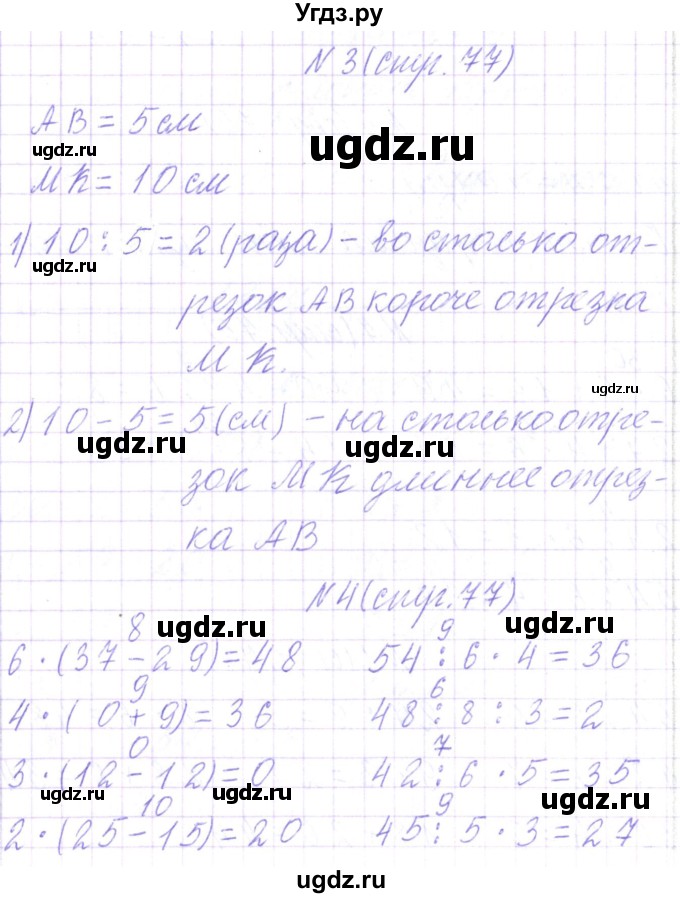 Угдз.ру
N 3 (стр. 77)
AB = 5 см
ugdz.ru
ugdz.ru
MK = 10 см
1) 10 : 5 = 2 (раза) – во столько от-
ugdz.ru
резок AB короче отрезка
MK.
ugdz.ru
2) 10 – 5 = 5 (см) – на столько отре-
ugdz.ru
ugdz.ru
зок MK длиннее отрез-
ка AB
N 4 (стр. 77)
ugdz.ru
ugdz.ru
8
6 · (37 – 29) = 48
9
4 · (0 + 9) = 36
0
3 · (12 – 12) = 0
ugdz.ru
ugdz.ru
10
2 · (25 – 15) = 20
9
54 : 6 · 4 = 36
6
48 : 8 : 3 = 2
7
42 : 6 · 5 = 35
ugdz.ru
9
45 : 5 · 3 = 27
ugdz.ru